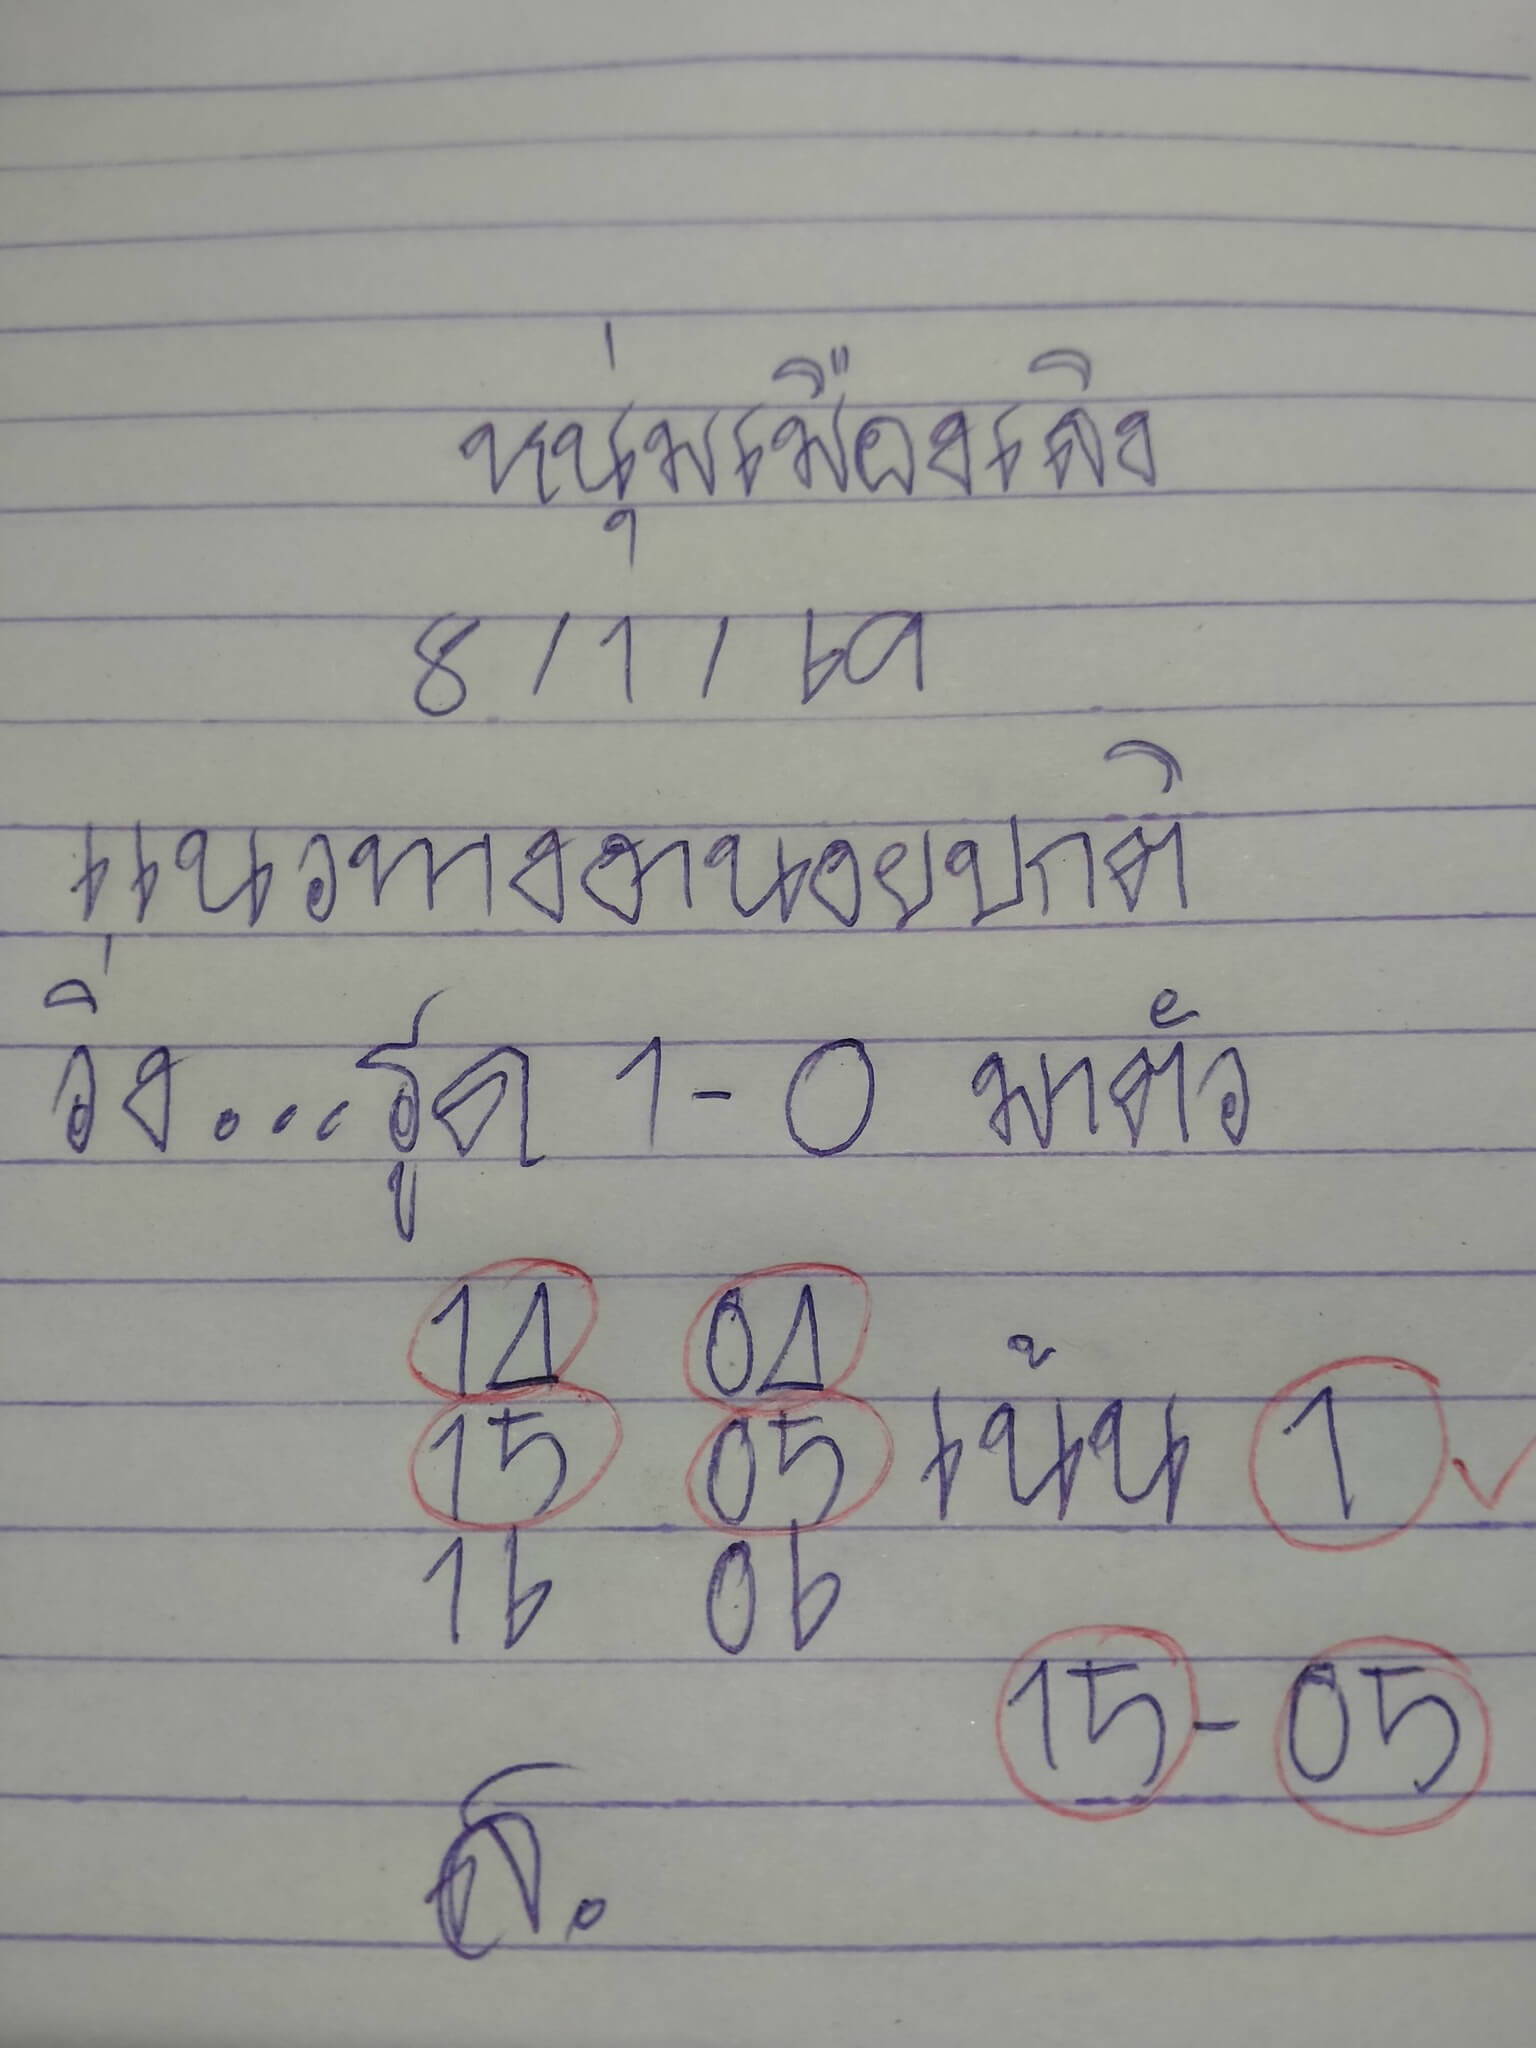 หนุ่มเมืองเลิง
8/1/69
แนวทางฮานอยปกติ
วิ่ง...รูด 1-0 มาตัว
14 04
15 05 เน้น 1
16 06
15-05